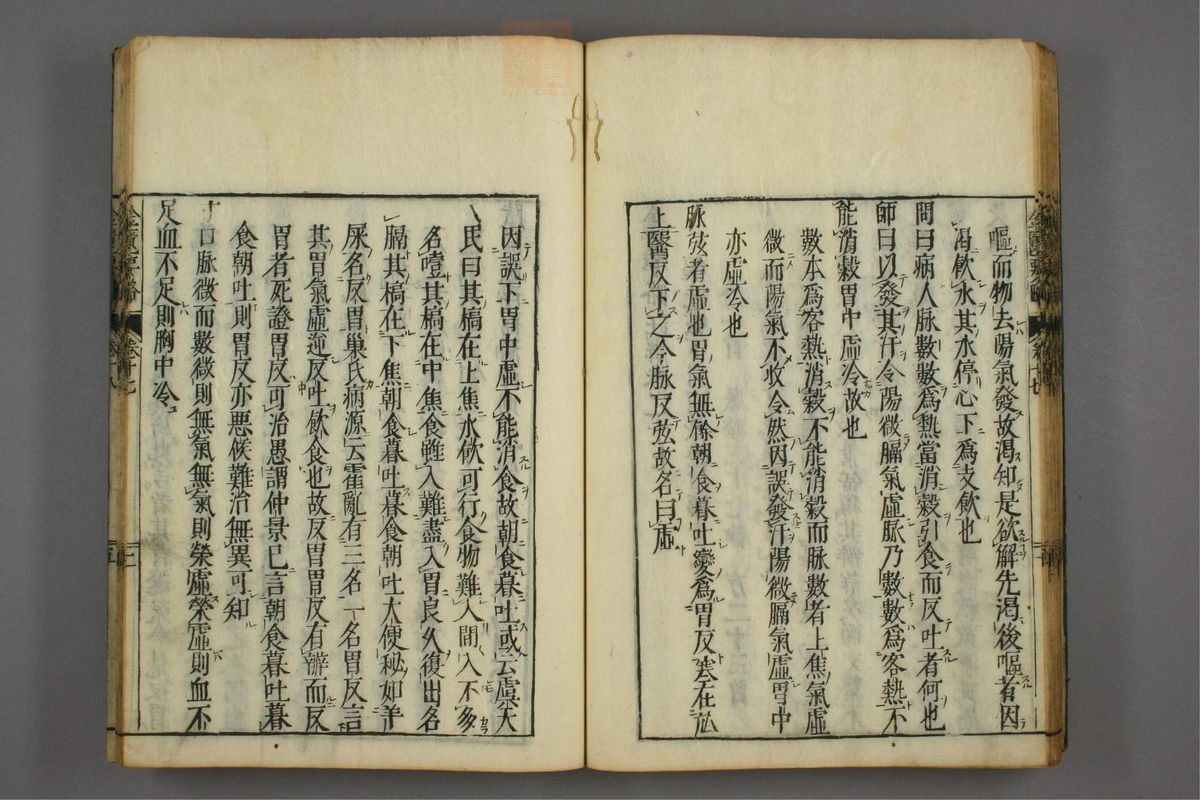 嘔而物去陽氣發故渴知是欲解先渴後嘔者因
渴飲水其水停心下爲支飲也
問曰病人脉數數爲熱當消穀引食而反吐者何也
師曰以發其汗令陽微膈氣虛脉乃數數爲客熱不
能消穀胃中虛冷故也
數本爲客熱消穀不能消穀而脉數者上焦氣虛
微而陽氣不收令然因誤發汗陽微膈氣虛胃中
亦虛冷也
脉弦者虛也胃氣無餘朝食暮吐變爲胃反寒在於
上醫反下之今脉反弦故名曰虛
因誤下胃中虛不能消食故朝食暮吐或云虞天
民曰其槁在上焦水飲可行食物難入間入不多
名噎其槁在中焦食雖入難盡入胃良久復出名
膈其槁在下焦朝食暮吐暮食朝吐大便秘如羊
屎名反胃巢氏病源云霍亂有三名一名胃反言
其胃氣虛逆反吐飲食也故反胃胃反有辨而反
胃者死證胃反可治愚謂仲景已言朝食暮吐暮
食朝吐則胃反亦惡候難治無異可知
寸口脉微而數微則無氣無氣則榮虛榮虛則血不
足血不足則胸中冷